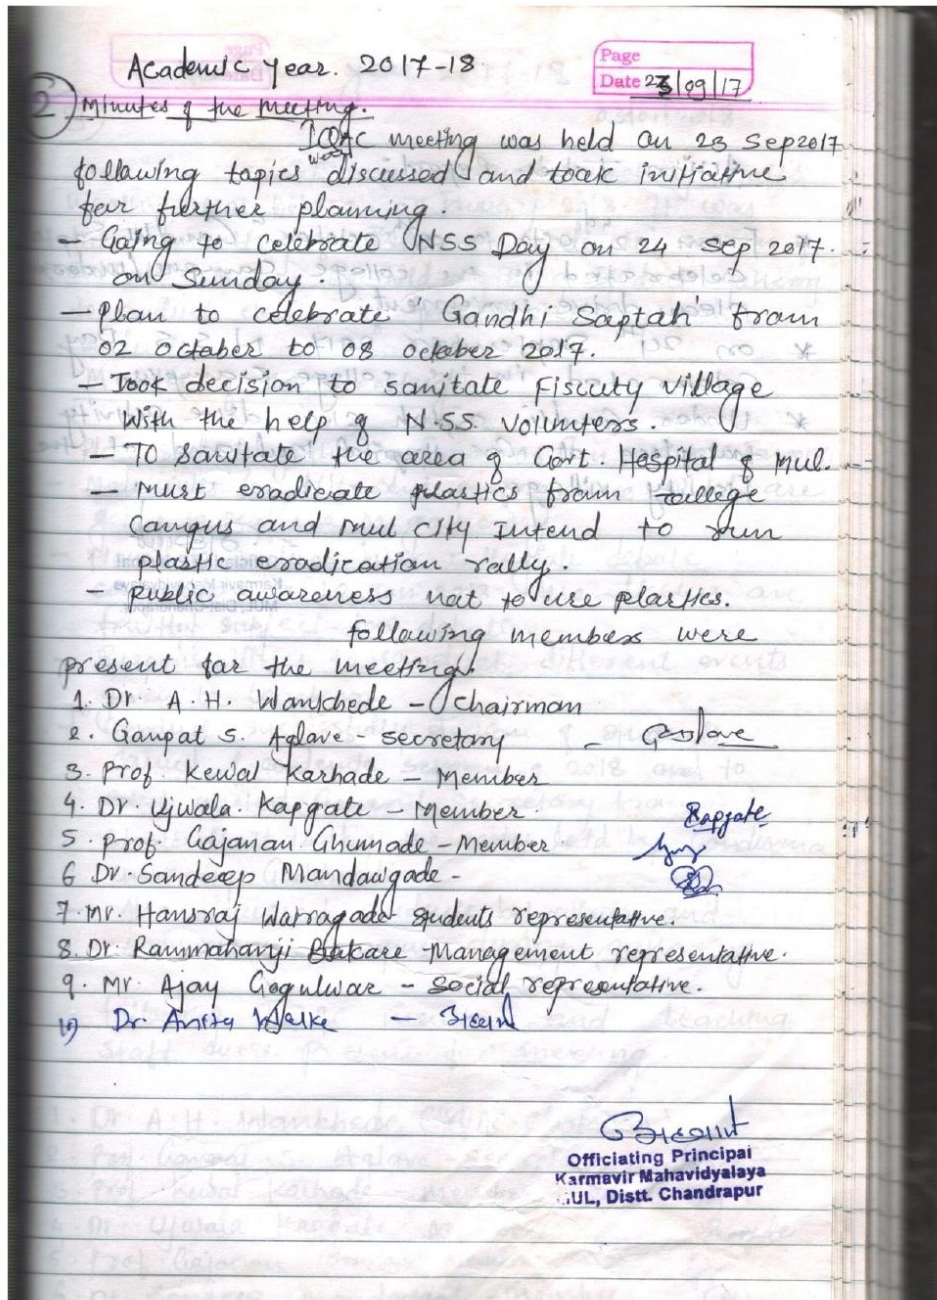 Academic Year. 2017-18
Page
Date 23/09/17
2 Minutes of the Meeting.
IQAC meeting was held on 23 Sep 2017
following topics were discussed and took initiative
for further planning.
- Going to celebrate NSS Day on 24 Sep 2017.
on Sunday.
- Plan to celebrate 'Gandhi Saptah' from
02 october to 08 october 2017.
- Took decision to sanitate Fiscuty village
With the help of N.S.S. Volunters.
- To sanitate the area of Govt. Hospital of Mul.
- Must eradicate plastics from college
Campus and Mul City Intend to run
plastic eradication rally.
- Public awareness not to use plastics.
following members were
present for the meeting.
1. Dr. A. H. Wankhede - Chairman
2. Ganpat S. Aglave - Secretary -
3. Prof. Kewal Karhade - Member
4. Dr. Ujwala Kapgate - Member. Kapgate
5. Prof. Gajanan Ghumade - Member
6 Dr. Sandeep Mandawgade -
7. Mr. Hansraj Watragade students representative.
8. Dr. Rammahanji Bakare - Management representative.
9. Mr. Ajay Gogulwar - Social representative.
10) Dr. Anita Walke -
Officiating Principal
Karmavir Mahavidyalaya
MUL, Distt. Chandrapur